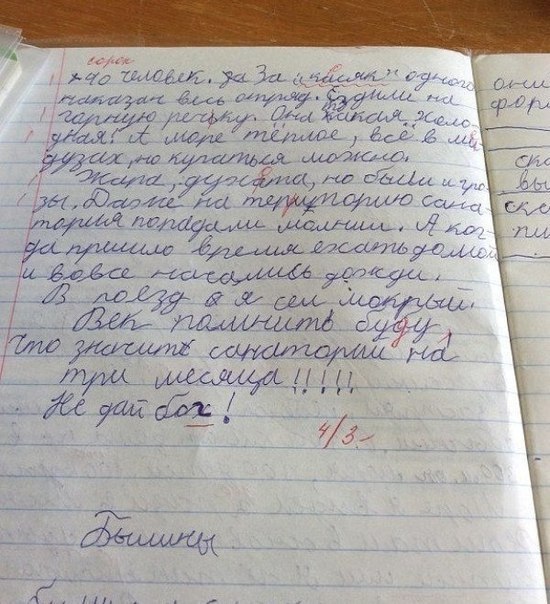 сорок
40 человек. За За "касяк" одного
наказан весь отряд. Ездили на
горную речьку. Она какая холо-
дная! А море тёплое, всё в ме
дузах, но купаться можно.
Жара, духата, но были и гро-
зы. Даже на территорию сана-
тория попадали молнии. А ког-
да пришло время ехать домой
и вовсе начались дожди.
В поезд я сел мокрый.
Век помнить буду,
что значить санаторий на
три месяца!!!!!
Не дай бох!
4/3-
Былины
они
фор
ско
вы
ске
пи